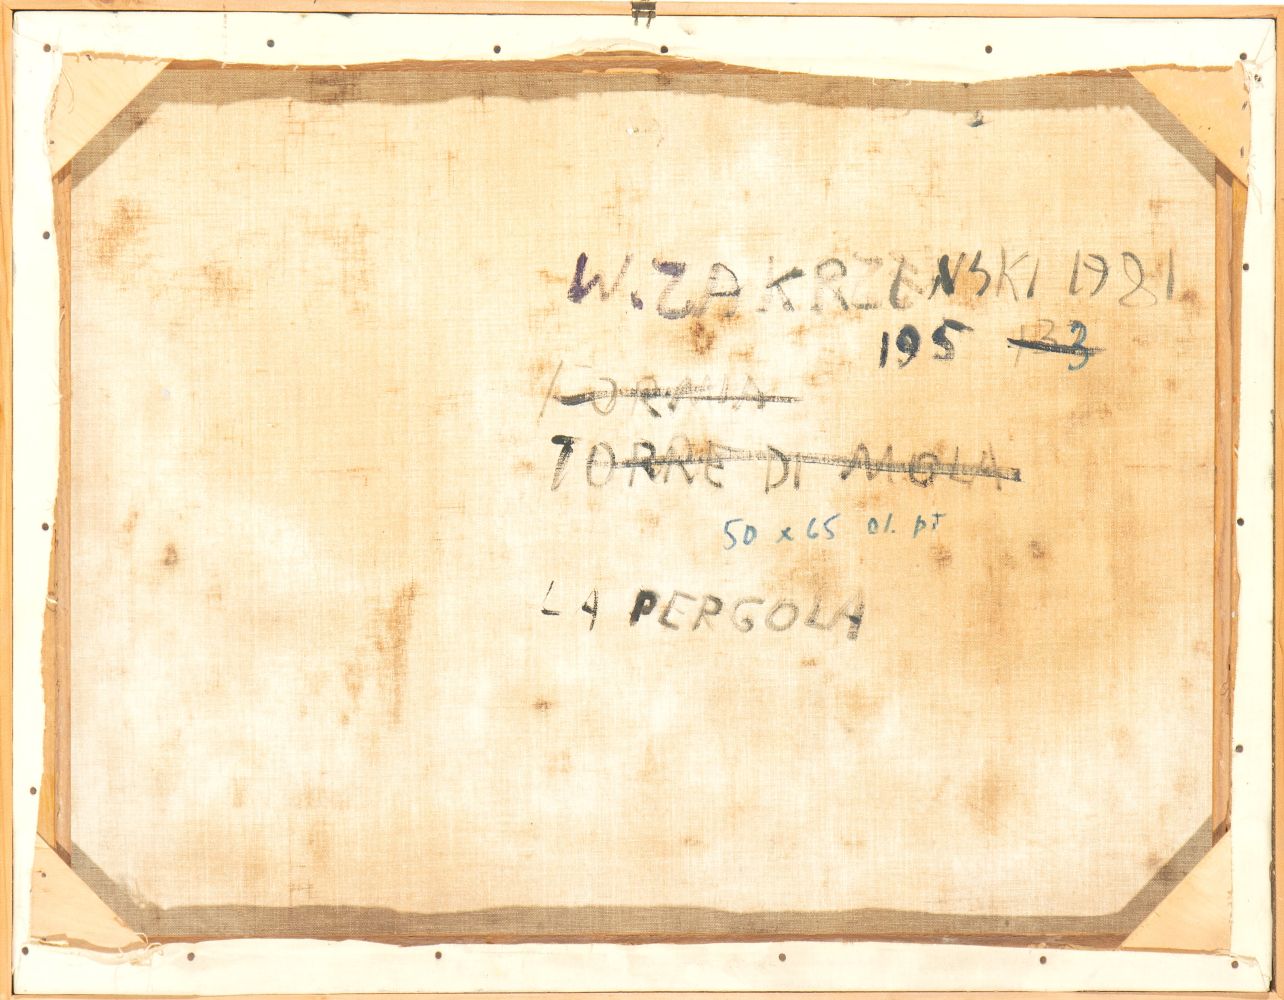 W. ZAKRZENSKI 1981
195 133
FORMIA
TORRE DI MOLA
50 x 65 ol. pt
LA PERGOLA